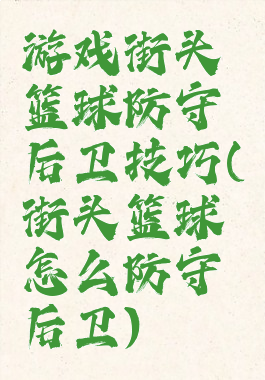 游戏街头
篮球防守
后卫技巧(
街头篮球
怎么防守
后卫)